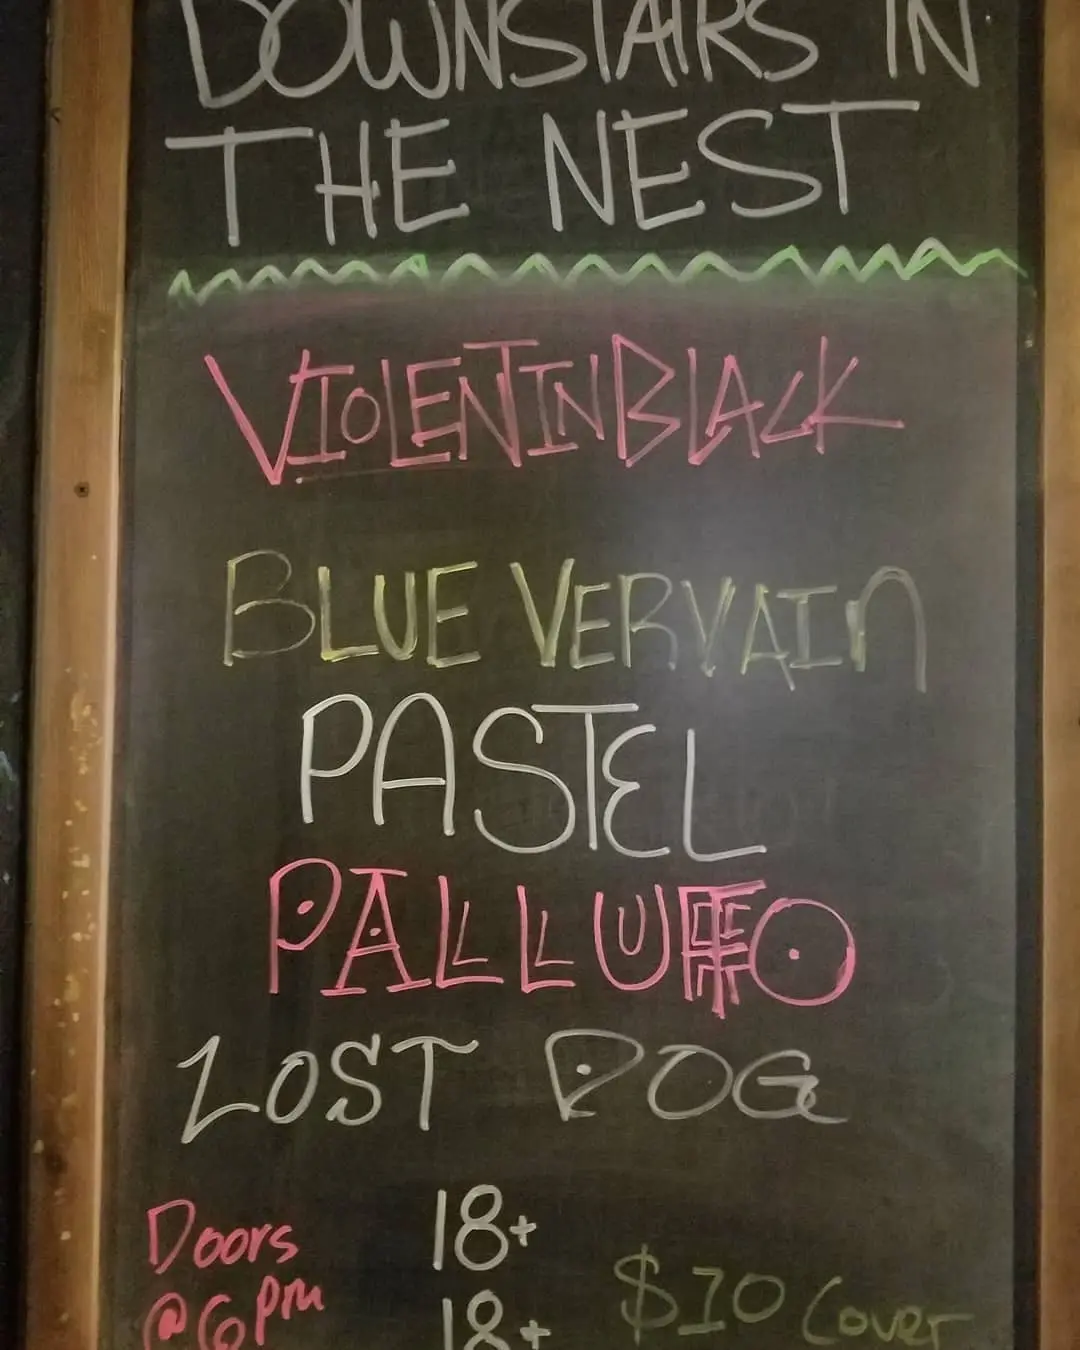 DOWNSTAIRS IN
THE NEST
VIOLENT IN BLACK
BLUE VERVAIN
PASTEL
PALLUTO
LOST DOG
Doors 18+
@ 6pm 18+ $10 Cover